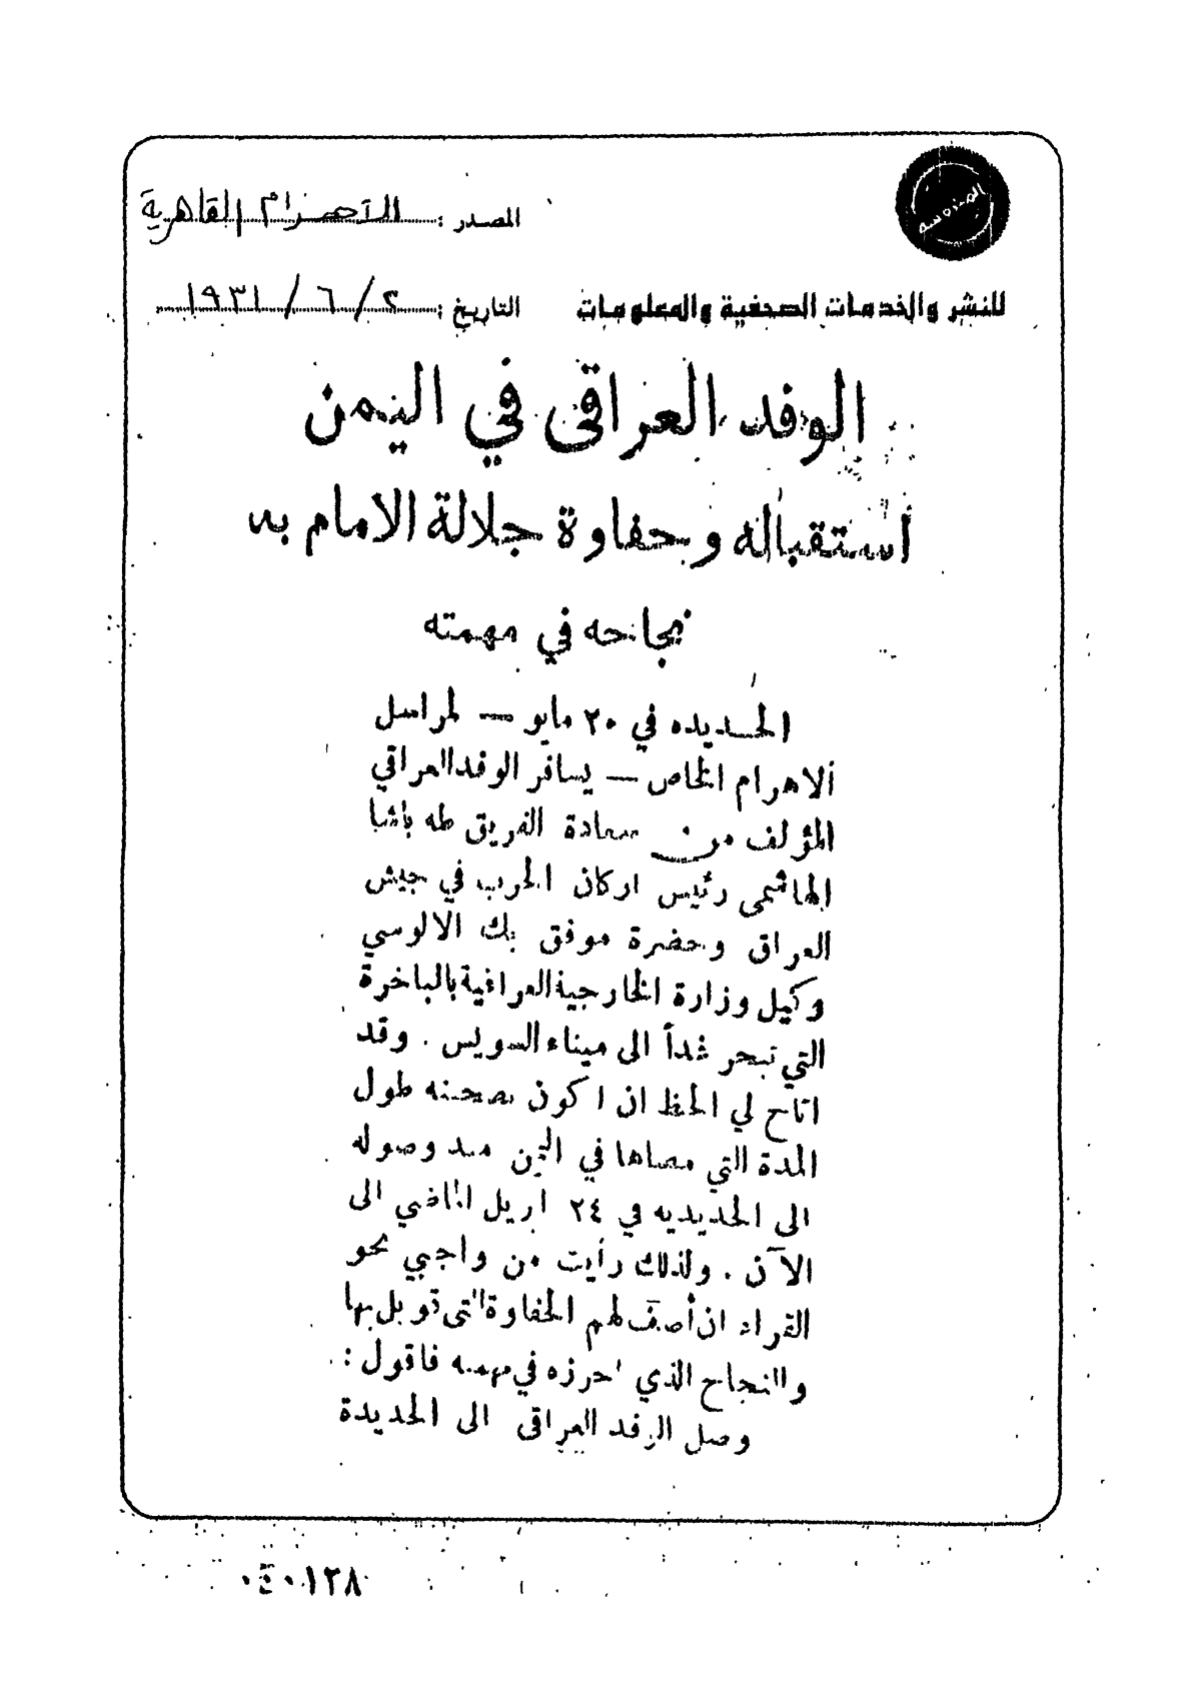 المصدر : الأهرام القاهرية
للنشر والخدمات الصحفية والمعلومات
التاريخ : ٢ / ٦ / ١٩٣١
الوفد العراقى في اليمن
أستقباله وحفاوة جلالة الامام به
نجاحه في مهمته
الحديده في ٢٠ مايو — لمراسل
الاهرام الخاص — يسافر الوفد العراقي
المؤلف من سعادة الفريق طه باشا
الهاشمى رئيس اركان الحرب في جيش
العراق وحضرة موفق بك الالوسي
وكيل وزارة الخارجية العراقية بالباخرة
التي تبحر غداً الى ميناء السويس . وقد
اتاح لي الحظ ان اكون بصحبته طول
المدة التي مضاها في اليمن منذ وصوله
الى الحديديه في ٢٤ ابريل الماضي الى
الآن . ولذلك رأيت من واجبي نحو
القراء ان أصف لهم الحفاوة التى قوبل بها
والنجاح الذي احرزه في مهمته فاقول :
وصل الوفد العراقى الى الحديدة
٠٤٠١٢٨